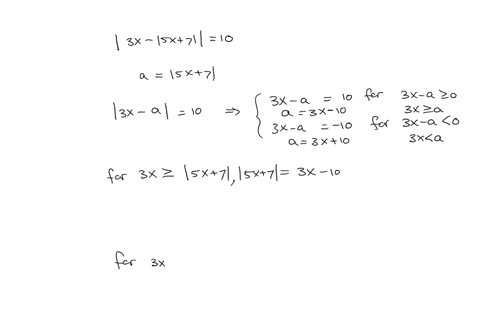 | 3x - |5x+7| | = 10
a = |5x+7|
|3x-a| = 10 ⇒ { 3x-a = 10 for 3x-a ≥ 0
a = 3x-10 3x ≥ a
3x-a = -10 for 3x-a < 0
a = 3x+10 3x < a
for 3x ≥ |5x+7|, |5x+7| = 3x-10
for 3x